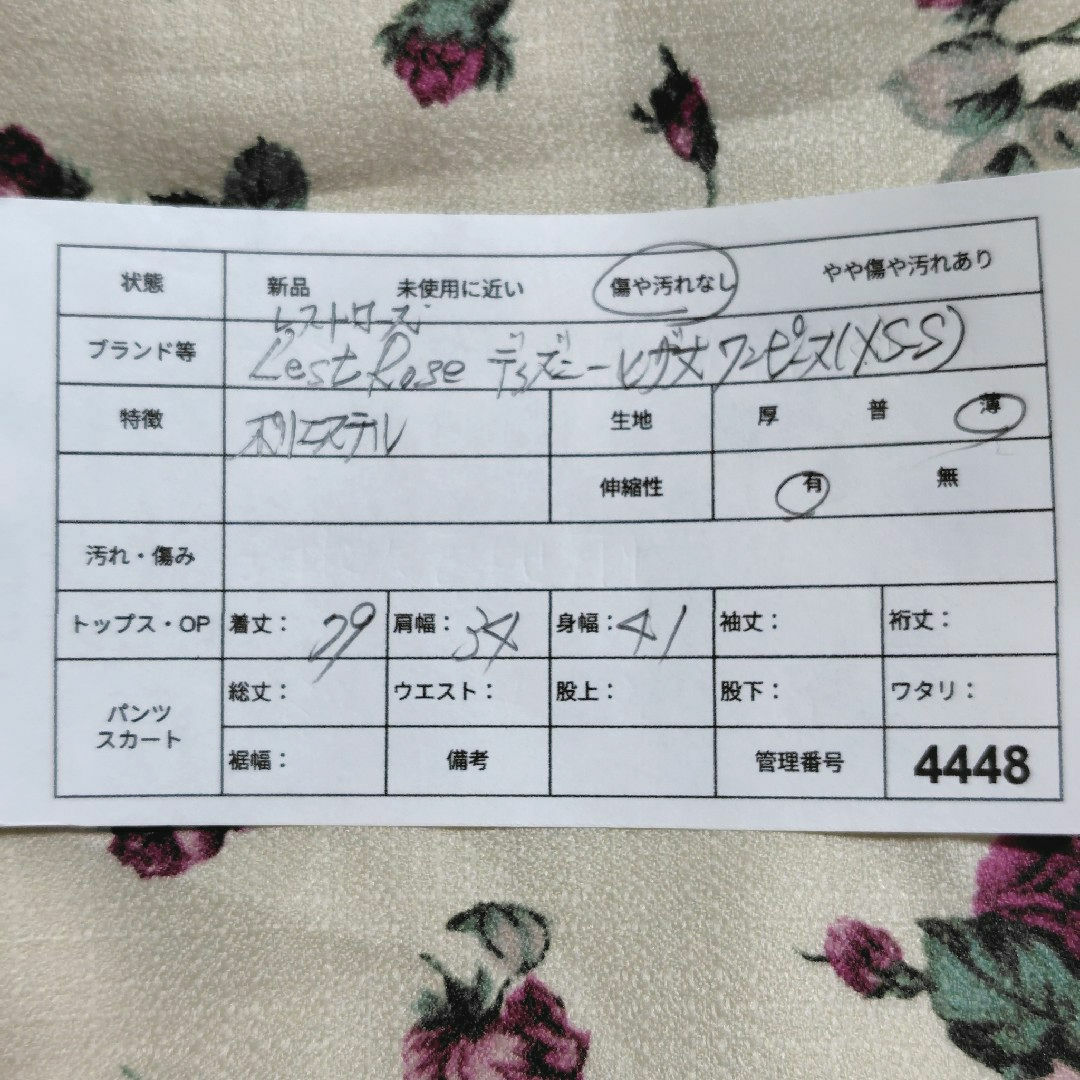 状態 新品 未使用に近い 傷や汚れなし やや傷や汚れあり
レストローズ
ブランド等 L'est Rose ディズニーヒザ丈ワンピース(XSS)
特徴 ポリエステル 生地 厚 普 薄
伸縮性 有 無
汚れ・傷み
トップス・OP 着丈: 肩幅: 34 身幅: 41 袖丈: 裄丈:
パンツ スカート 総丈: ウエスト: 股上: 股下: ワタリ:
裾幅: 備考 管理番号 4448